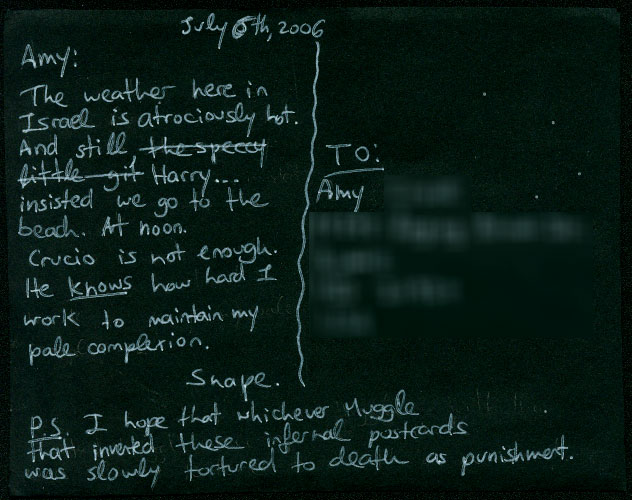 July 6th, 2006
Amy:
The weather here in
Israel is atrociously hot.
And still, the speccy
little git Harry...
insisted we go to the
beach. At noon.
Crucio is not enough.
He knows how hard I
work to maintain my
pale complexion.
Snape.
TO:
Amy
P.S. I hope that whichever Muggle
that invented these infernal postcards
was slowly tortured to death as punishment.